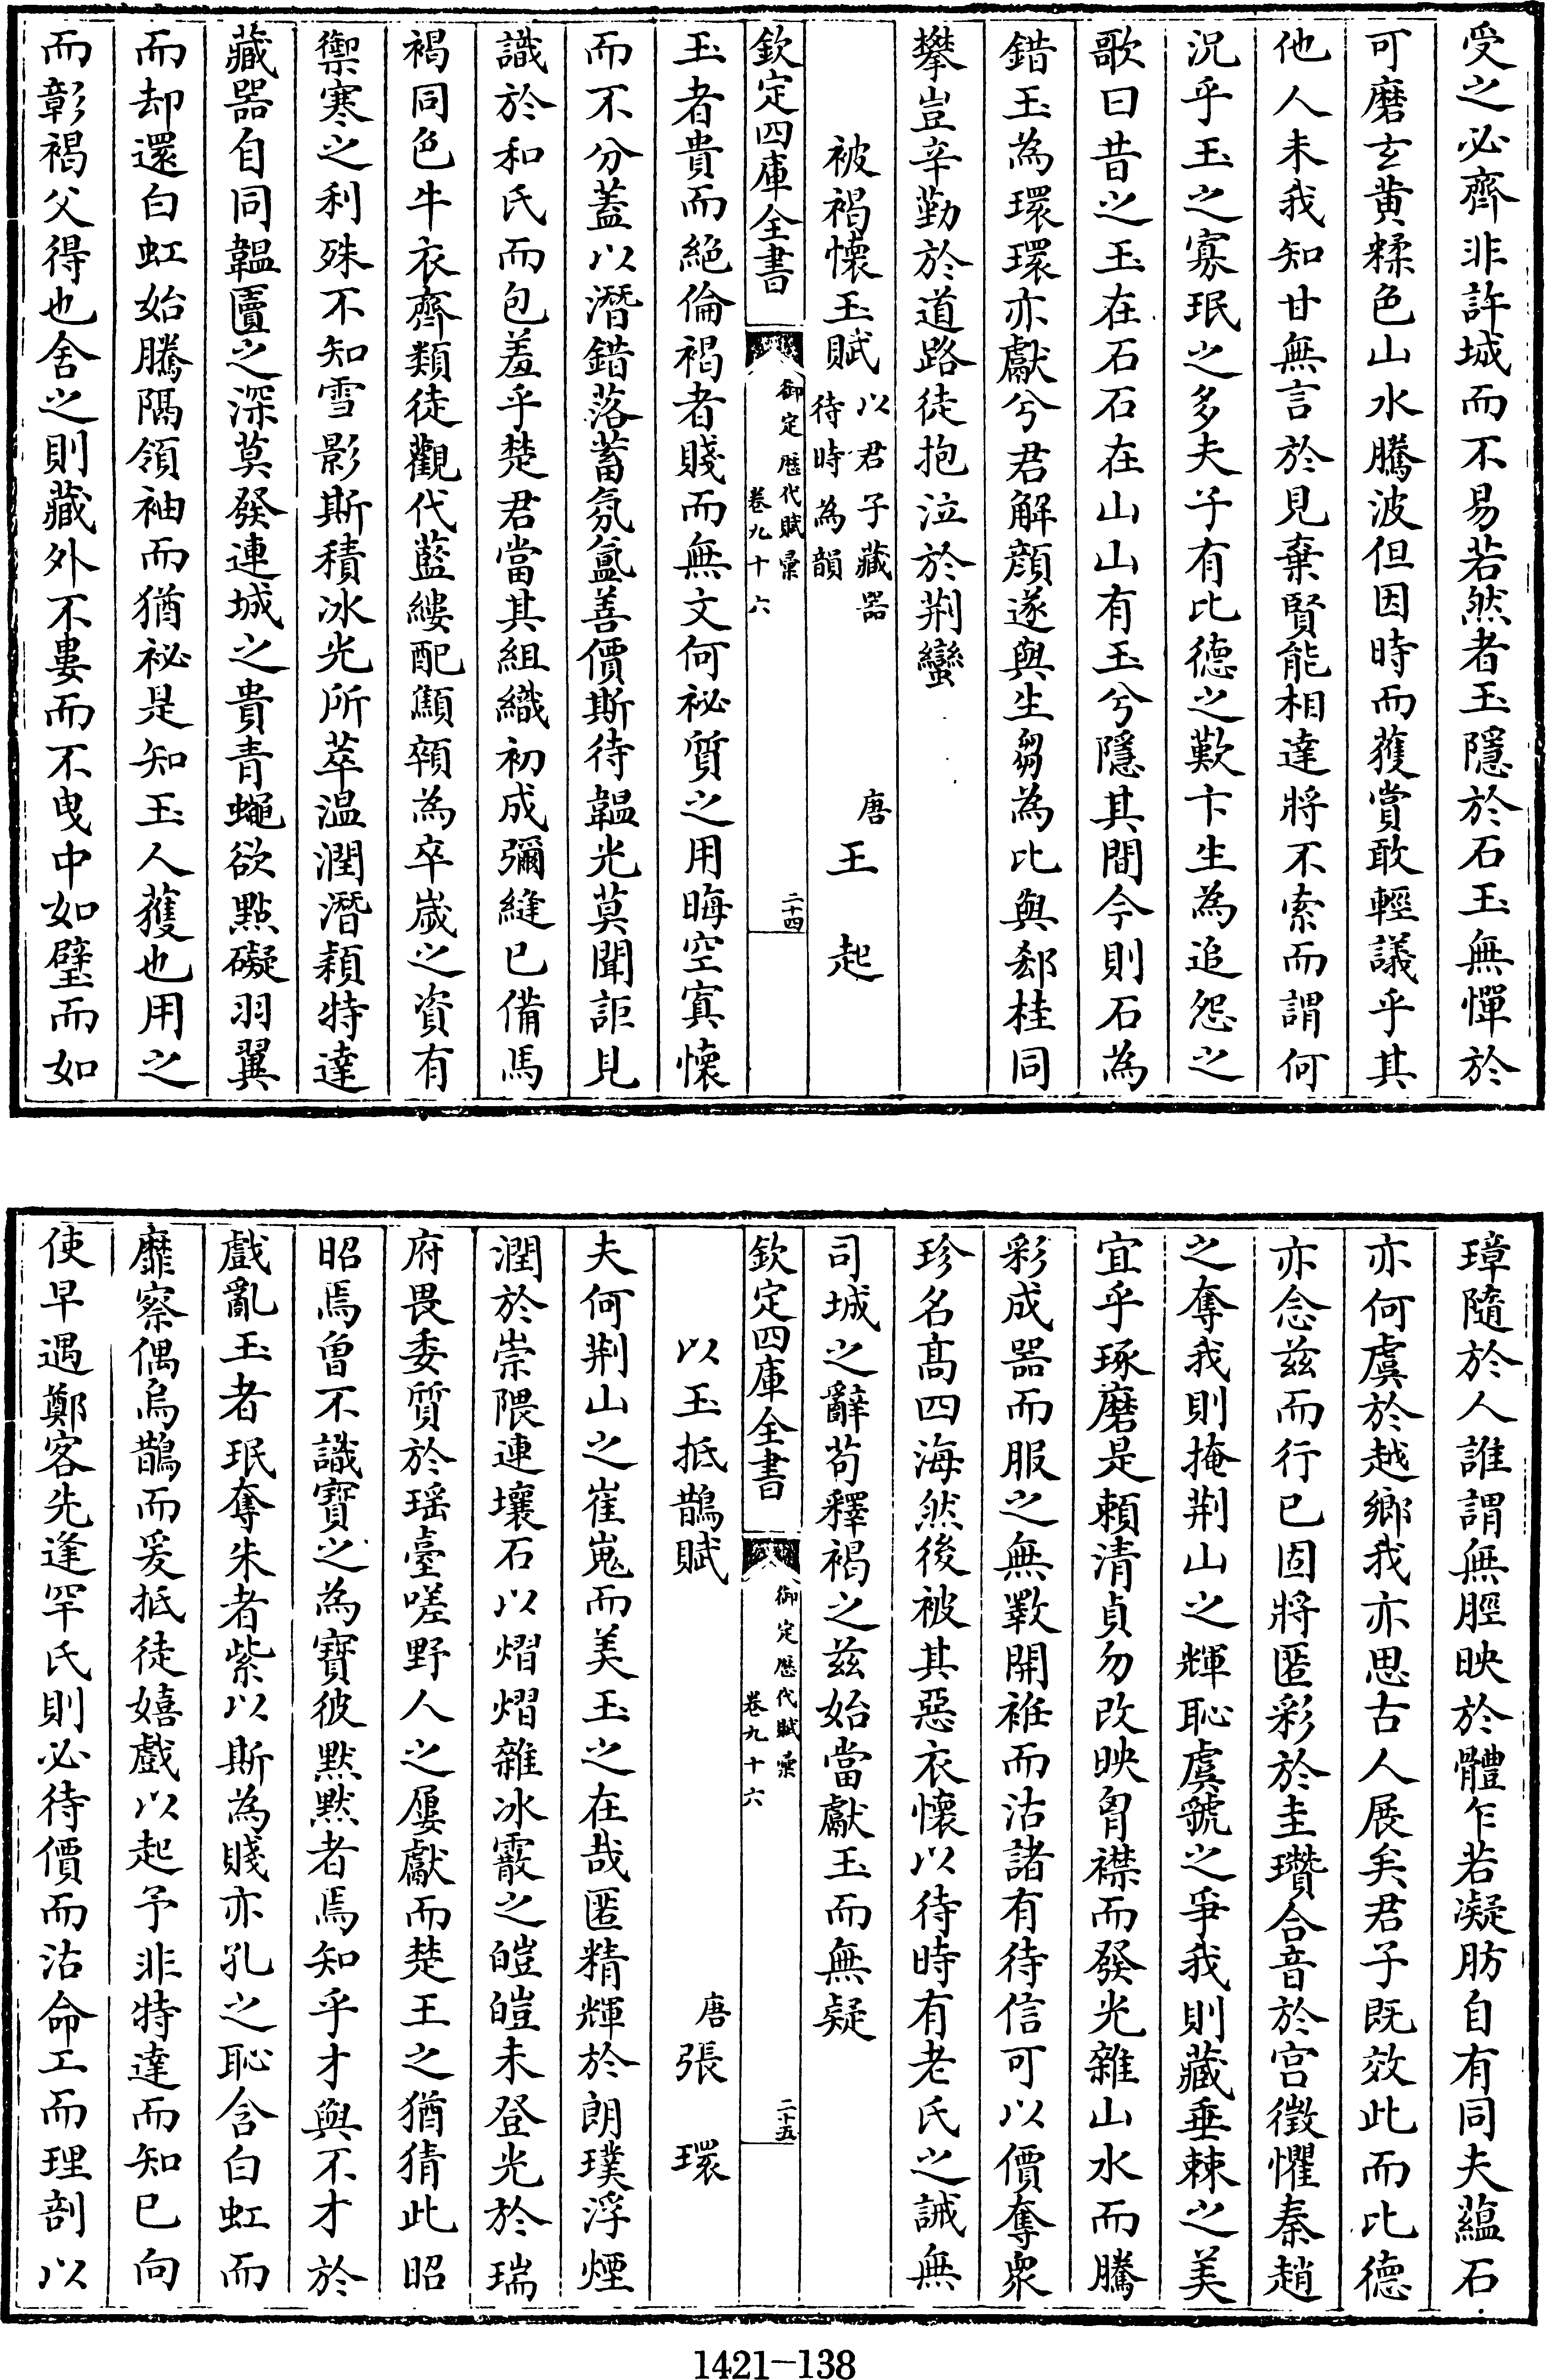 受之必齊非許城而不易若然者玉隱於石玉無憚於
可磨玄黄糅色山水騰波但因時而獲賞敢輕議乎其
他人未我知甘無言於見棄賢能相達將不索而謂何
況乎玉之寡珉之多夫子有比德之歎卞生為追怨之
歌曰昔之玉在石石在山山有玉兮隱其間今則石為
錯玉為環環亦獻兮君解顔遂與生芻為比與郄桂同
攀豈辛勤於道路徒抱泣於荆蠻
被褐懷玉賦以君子藏器待時為韻 唐王起
欽定四庫全書 御定歷代賦彙卷九十六 二十四
玉者貴而絶倫褐者賤而無文何祕質之用晦空寘懷
而不分蓋以潛錯落蓄氛氲善價斯待韞光莫聞詎見
識於和氏而包羞乎楚君當其組織初成彌縫已備馬
褐同色牛衣齊類徒觀代藍縷配顦顇為卒歲之資有
禦寒之利殊不知雪影斯積冰光所萃温潤潛穎特達
藏器自同韞匵之深莫發連城之貴青蠅欲點礙羽翼
而却還白虹始騰隅領袖而猶祕是知玉人獲也用之
而彰褐父得也舍之則藏外不婁而不曳中如璧而如
璋隨於人誰謂無脛映於體乍若凝肪自有同夫藴石
亦何虞於越鄉我亦思古人展矣君子既效此而比德
亦念兹而行已固將匿彩於圭瓚合音於宫徵懼秦趙
之奪我則掩荆山之輝恥虞虢之爭我則藏垂棘之美
宜乎琢磨是頼清貞勿改映胷襟而發光雜山水而騰
彩成器而服之無斁開袵而沽諸有待信可以價奪衆
珍名髙四海然後被其惡衣懷以待時有老氏之誡無
司城之辭苟釋褐之兹始當獻玉而無疑
欽定四庫全書 御定歷代賦彙卷九十六 二十五
以玉抵鵲賦 唐張環
夫何荆山之崔嵬而美玉之在哉匿精輝於朗璞浮煙
潤於崇隈連壤石以熠熠雜冰霰之皚皚未登光於瑞
府畏委質於瑶臺嗟野人之屢獻而楚王之猶猜此昭
昭焉曽不識寳之為寳彼默默者焉知乎才與不才於
戲亂玉者珉奪朱者紫以斯為賤亦孔之恥含白虹而
靡察偶烏鵲而爰抵徒嬉戲以起予非特達而知已向
使早遇鄭客先逢罕氏則必待價而沽命工而理剖以
1421-138